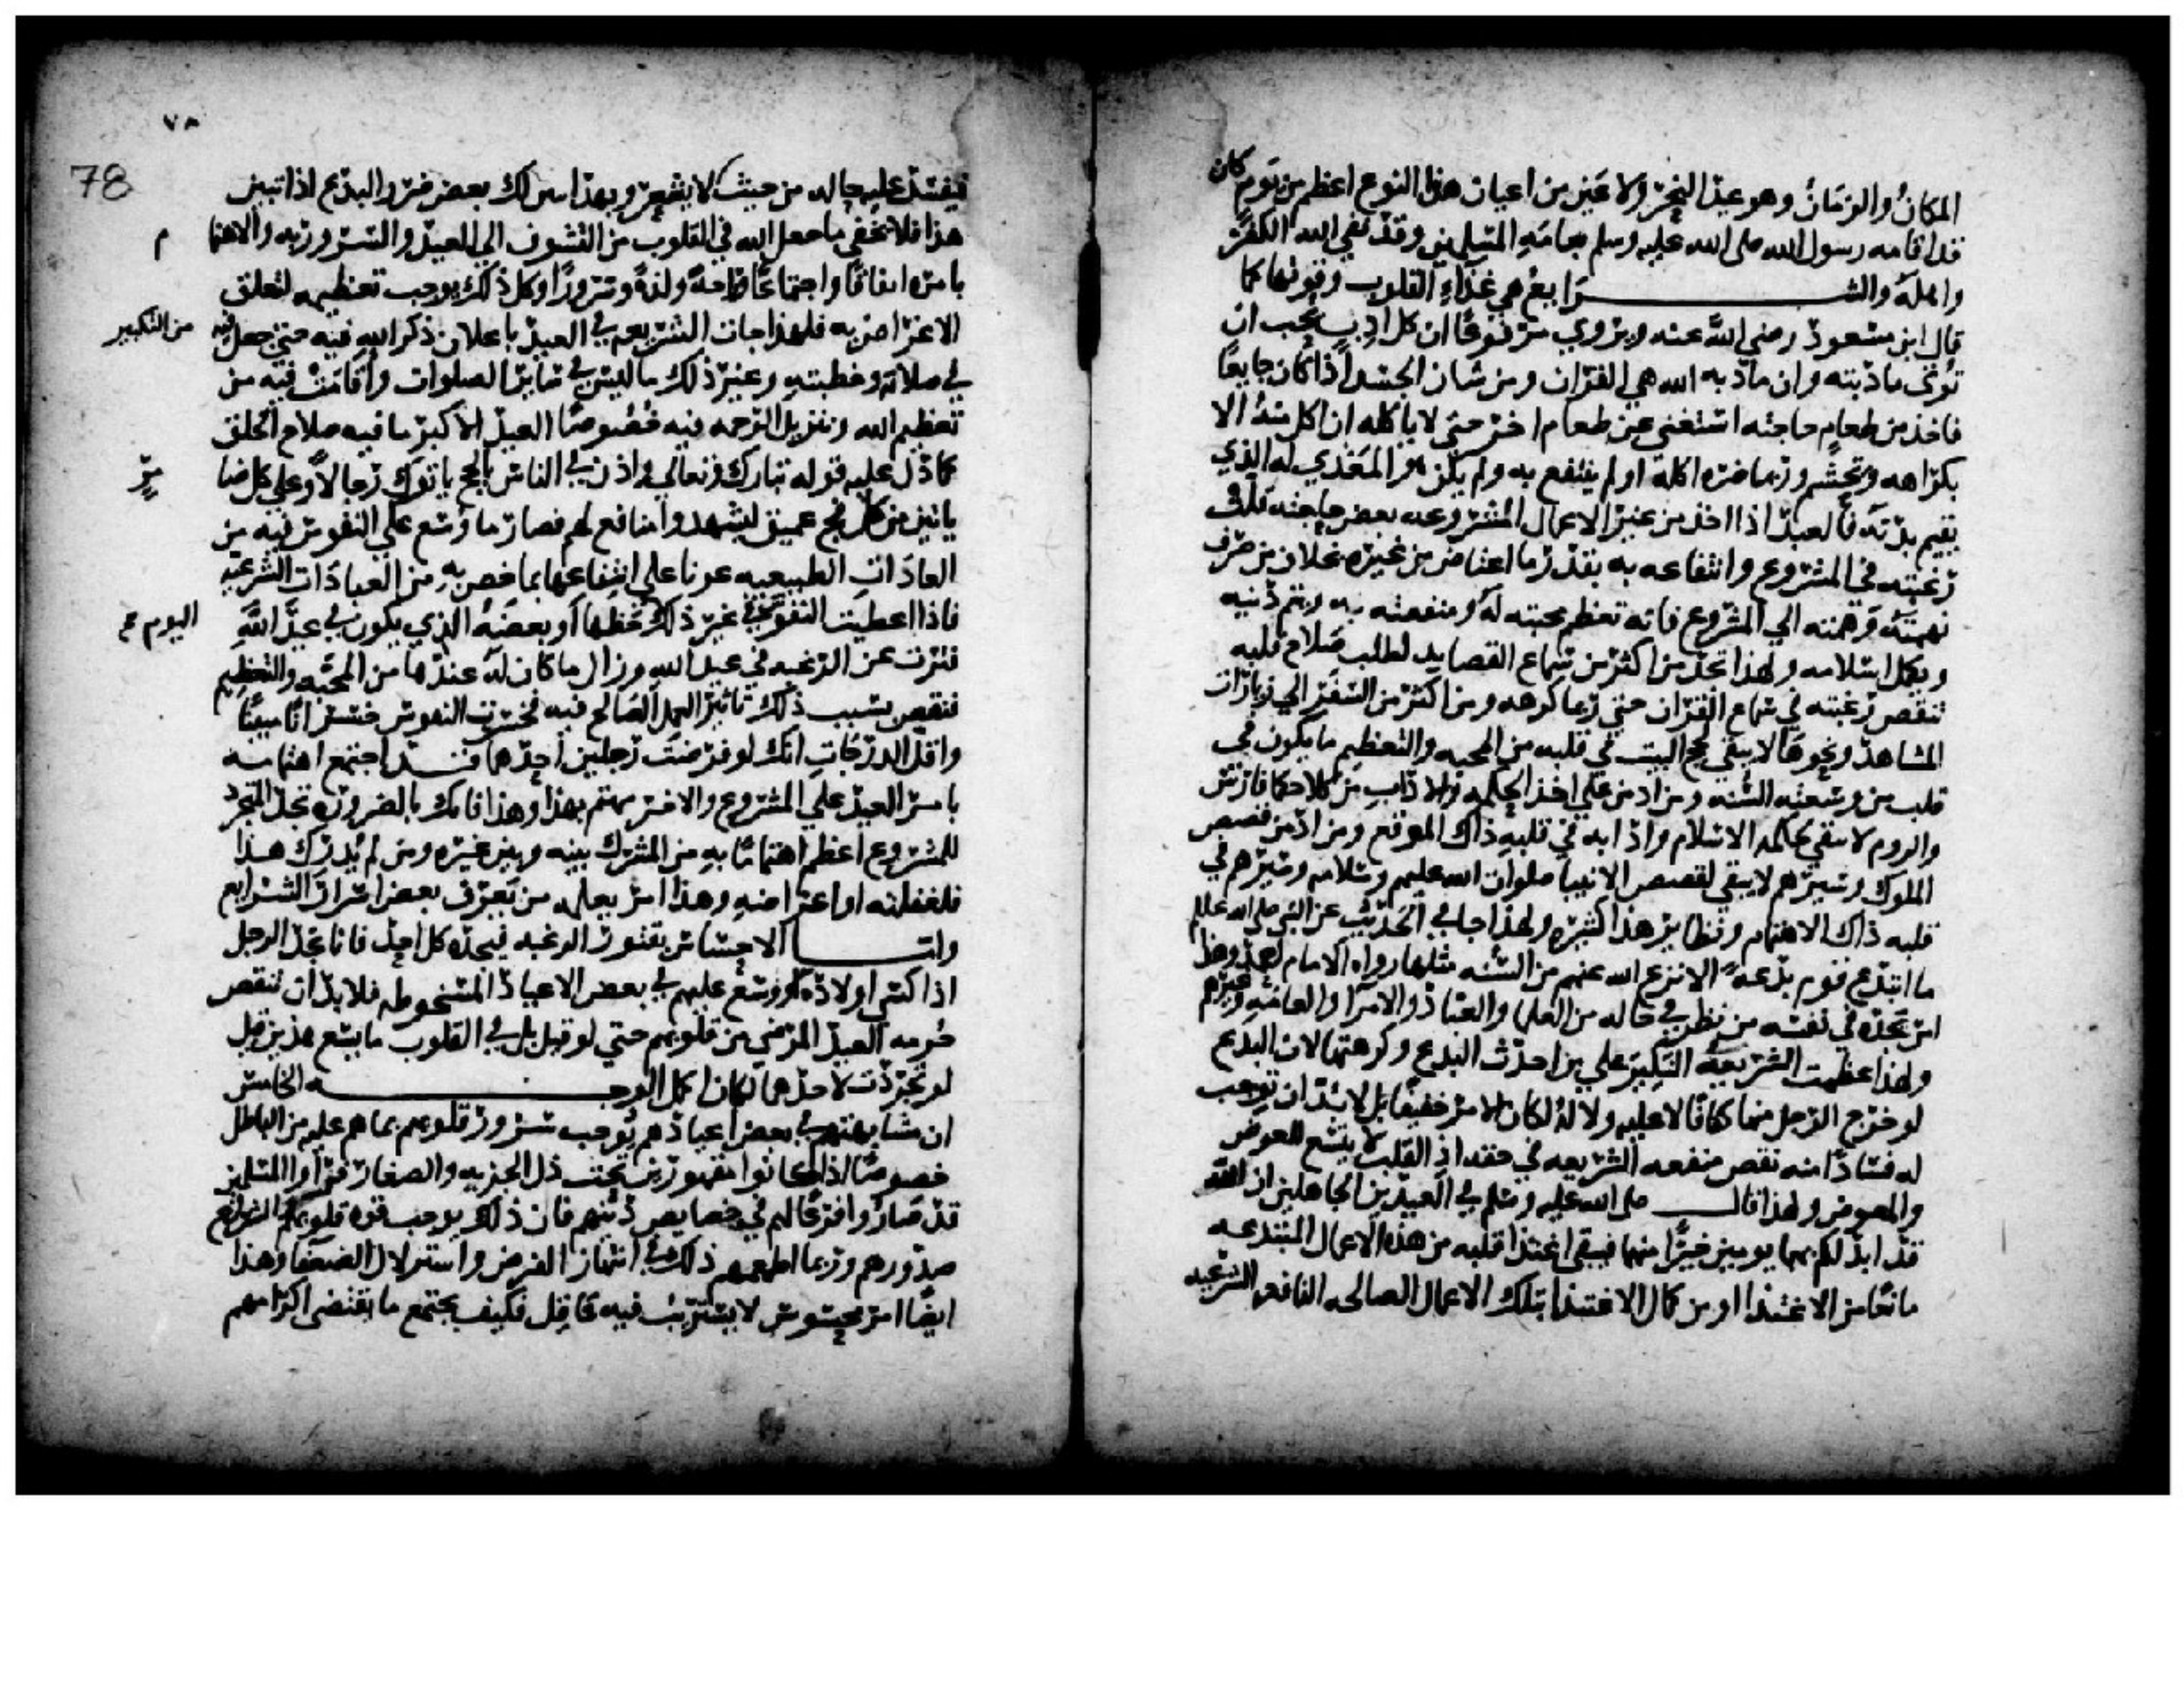 المكان والزمان وهو عيد النحر ولا عين من اعيان هذا النوع اعظم من يوم كان
قد اقامه رسول الله صلى الله عليه وسلم بعامة المسلمين وقد نفى الله الكفر
واهله والشرايع هي غذاء القلوب وقوتها كما
قال ابن مسعود رضي الله عنه ويروي مرفوعا ان كل ادب يحب ان
تؤتى مادبته وان مادبة الله هي القران ومن شان الجسد اذا كان جايعا
فاخذ من طعام حاجته استغنى عن طعام اخر حتى لا ياكله ان اكل منه الا
بكراهه وتجشم وربما ضره اكله او لم ينتفع به ولم يكن هو المغذي له الذي
يقيم بدنه فالعبد اذا اخذ من غير الاعمال المشروعه بعض حاجته قلت
رغبته في المشروع وانتفاعه به بقدر ما اعتاض من غيره بخلاف من صرف
نهمته وهمته الي المشروع فانه تعظم محبته له ومنفعته به ويتم دينه
ويكمل اسلامه ولهذا تجد من اكثر من سماع القصايد لطلب صلاح قلبه
تنقص رغبته في سماع القران حتى ربما كرهه ومن اكثر من السفر الي زيارات
المشاهد ونحوها لا يبقي لحج البيت في قلبه من المحبه والتعظيم ما يكون في
قلب من وسعته السنه ومن ادمن علي اخذ الحكمه والاداب من كلام حكما فارس
والروم لا يبقي لحكمه الاسلام وادابه في قلبه ذاك الموقع ومن ادمن قصص
الملوك وسيرهم لا يبقي لقصص الانبيا صلوات الله عليهم وسلامه وسيرهم في
قلبه ذاك الاهتمام ونظاير هذا كثيره ولهذا جا في الحديث عن النبي صلى الله عليه وسلم
ما ابتدع قوم بدعة الا نزع الله عنهم من السنه مثلها رواه الامام احمد وهذا
امر يجده في نفسه من نظر في حاله من العلما والعباد والامرا والعامه وغيرهم
ولهذا عظمت الشريعة النكير علي من احدث البدع وكرهتها لان البدع
لو خرج الرجل منها كفافا لا عليه ولا له لكان الامر خفيفا بل لا بد ان توجب
له فسادا منه نقص منفعه الشريعه في حقه اذ القلب لا يتسع للعوض
والمعوض ولهذا قال صلى الله عليه وسلم في العيدين الجاهلين ان الله
قد ابدلكم بهما يومين خيرا منهما فيبقي اغتذا قلبه من هذه الاعمال المبتدعه
مانعا من الاغتذا او من كمال الاغتذا بتلك الاعمال الصالحه النافعه الشرعيه
٧٨
78
فيفسد عليه حاله من حيث لا يشعر وبهذا يدرك بعض ضرر البدع اذا تبين
هذا فلا يخفي ما جعل الله في القلوب من التشوف الي العيد والسرور به والاهتما م
بامره انفاقا واجتماعا وراحة ولذة وسرورا وكل ذلك يوجب تعظيمه لتعلق
الاغراض به فلهذا جات الشريعه في العيد باعلان ذكر الله فيه حتى جعل فيه من التكبير
في صلاته وخطبته وغير ذلك ما ليس في ساير الصلوات واقامت فيه من
تعظيم الله وتنزيل الرحمه فيه خصوصا العيد الاكبر ما فيه صلاح الخلق
كما دل عليه قوله تبارك وتعالي واذن في الناس بالحج ياتوك رجالا وعلي كل ضا مر
ياتين من كل فج عميق ليشهدوا منافع لهم فصار ما وسع علي النفوس فيه من
العادات الطبيعيه عونا علي انتفاعها بما خص به من العبادات الشرعيه
فاذا اعطيت النفوس في غير ذلك اليوم حظها او بعضه الذي يكون في عيد الله
فترت عن الرغبه في عيد الله وزال ما كان له عندها من المحبه والتعظيم
فنقص بسبب ذلك تاثير العمل الصالح فيه فخسرت النفوس خسرانا مبينا
واقل الدرجات انك لو فرضت رجلين احدهما قد اجتمع اهتمامه
بامر العيد علي المشروع والاخر مهتم بهذا وهذا فانك بالضروره تجد المتجرد
للمشروع اعظم اهتماما به من المشرك بينه وبين غيره ومن لم يدرك هذا
فلغفلته او اعراضه وهذا امر يعلمه من يعرف بعض اسرار الشرايع
واما الاحساس بفتور الرغبه فيجده كل احد فانا نجد الرجل
اذا كسى اولاده او وسع عليهم في بعض الاعياد المسخوطه فلا بد ان تنقص
حرمه العيد المرضي من قلوبهم حتى لو قيل بل في القلوب ما يسع هذين قيل
لو تجردت لاحدهما لكان اكمل الوجه الخامس
ان مشابهتهم في بعض اعيادهم يوجب سرور قلوبهم بما هم عليه من الباطل
خصوصا اذا كانوا مقهورين تحت ذل الجزيه والصغار فراوا المسلمين
قد صاروا فرعا لهم في خصايص دينهم فان ذلك يوجب قوه قلوبهم وانشراح
صدورهم وربما اطمعهم ذلك في انتهاز الفرص واستزلال الضعفا وهذا
ايضا امر محسوس لا يستريب فيه عاقل فكيف يجتمع ما يقتضي اكرامهم